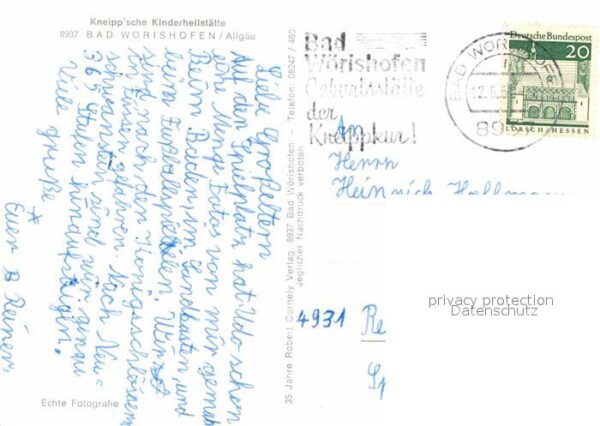 Kneipp'sche Kinderheilstätte
8937 BAD WÖRISHOFEN/Allgäu
Liebe Großeltern
Auf den Spielplatz hat Udo schon
eine Menge Fotos von mir gemacht
Beim Baden, im Sandkasten, und
beim Fußballspielen. Wir
sind nach den Königsschlössern
in Füssen gefahren. Nach Neu=
schwanstein sind wir genau
365 Stufen hinaufstiegen.
Viele grüße
Euer Reiner
Echte Fotografie
35 Jahre Robert Cornely Verlag, 8937 Bad Wörishofen - Telefon: 08247 / 460
Jeglicher Nachdruck verboten
Bad
Wörishofen
Geburtsstätte
der
Kneippkur!
BAD WÖRISHOFEN
12.6.
89
Deutsche Bundespost
20
LORSCH/HESSEN
An
Herrn
Heinrich
4931 Re
privacy protection
Datenschutz